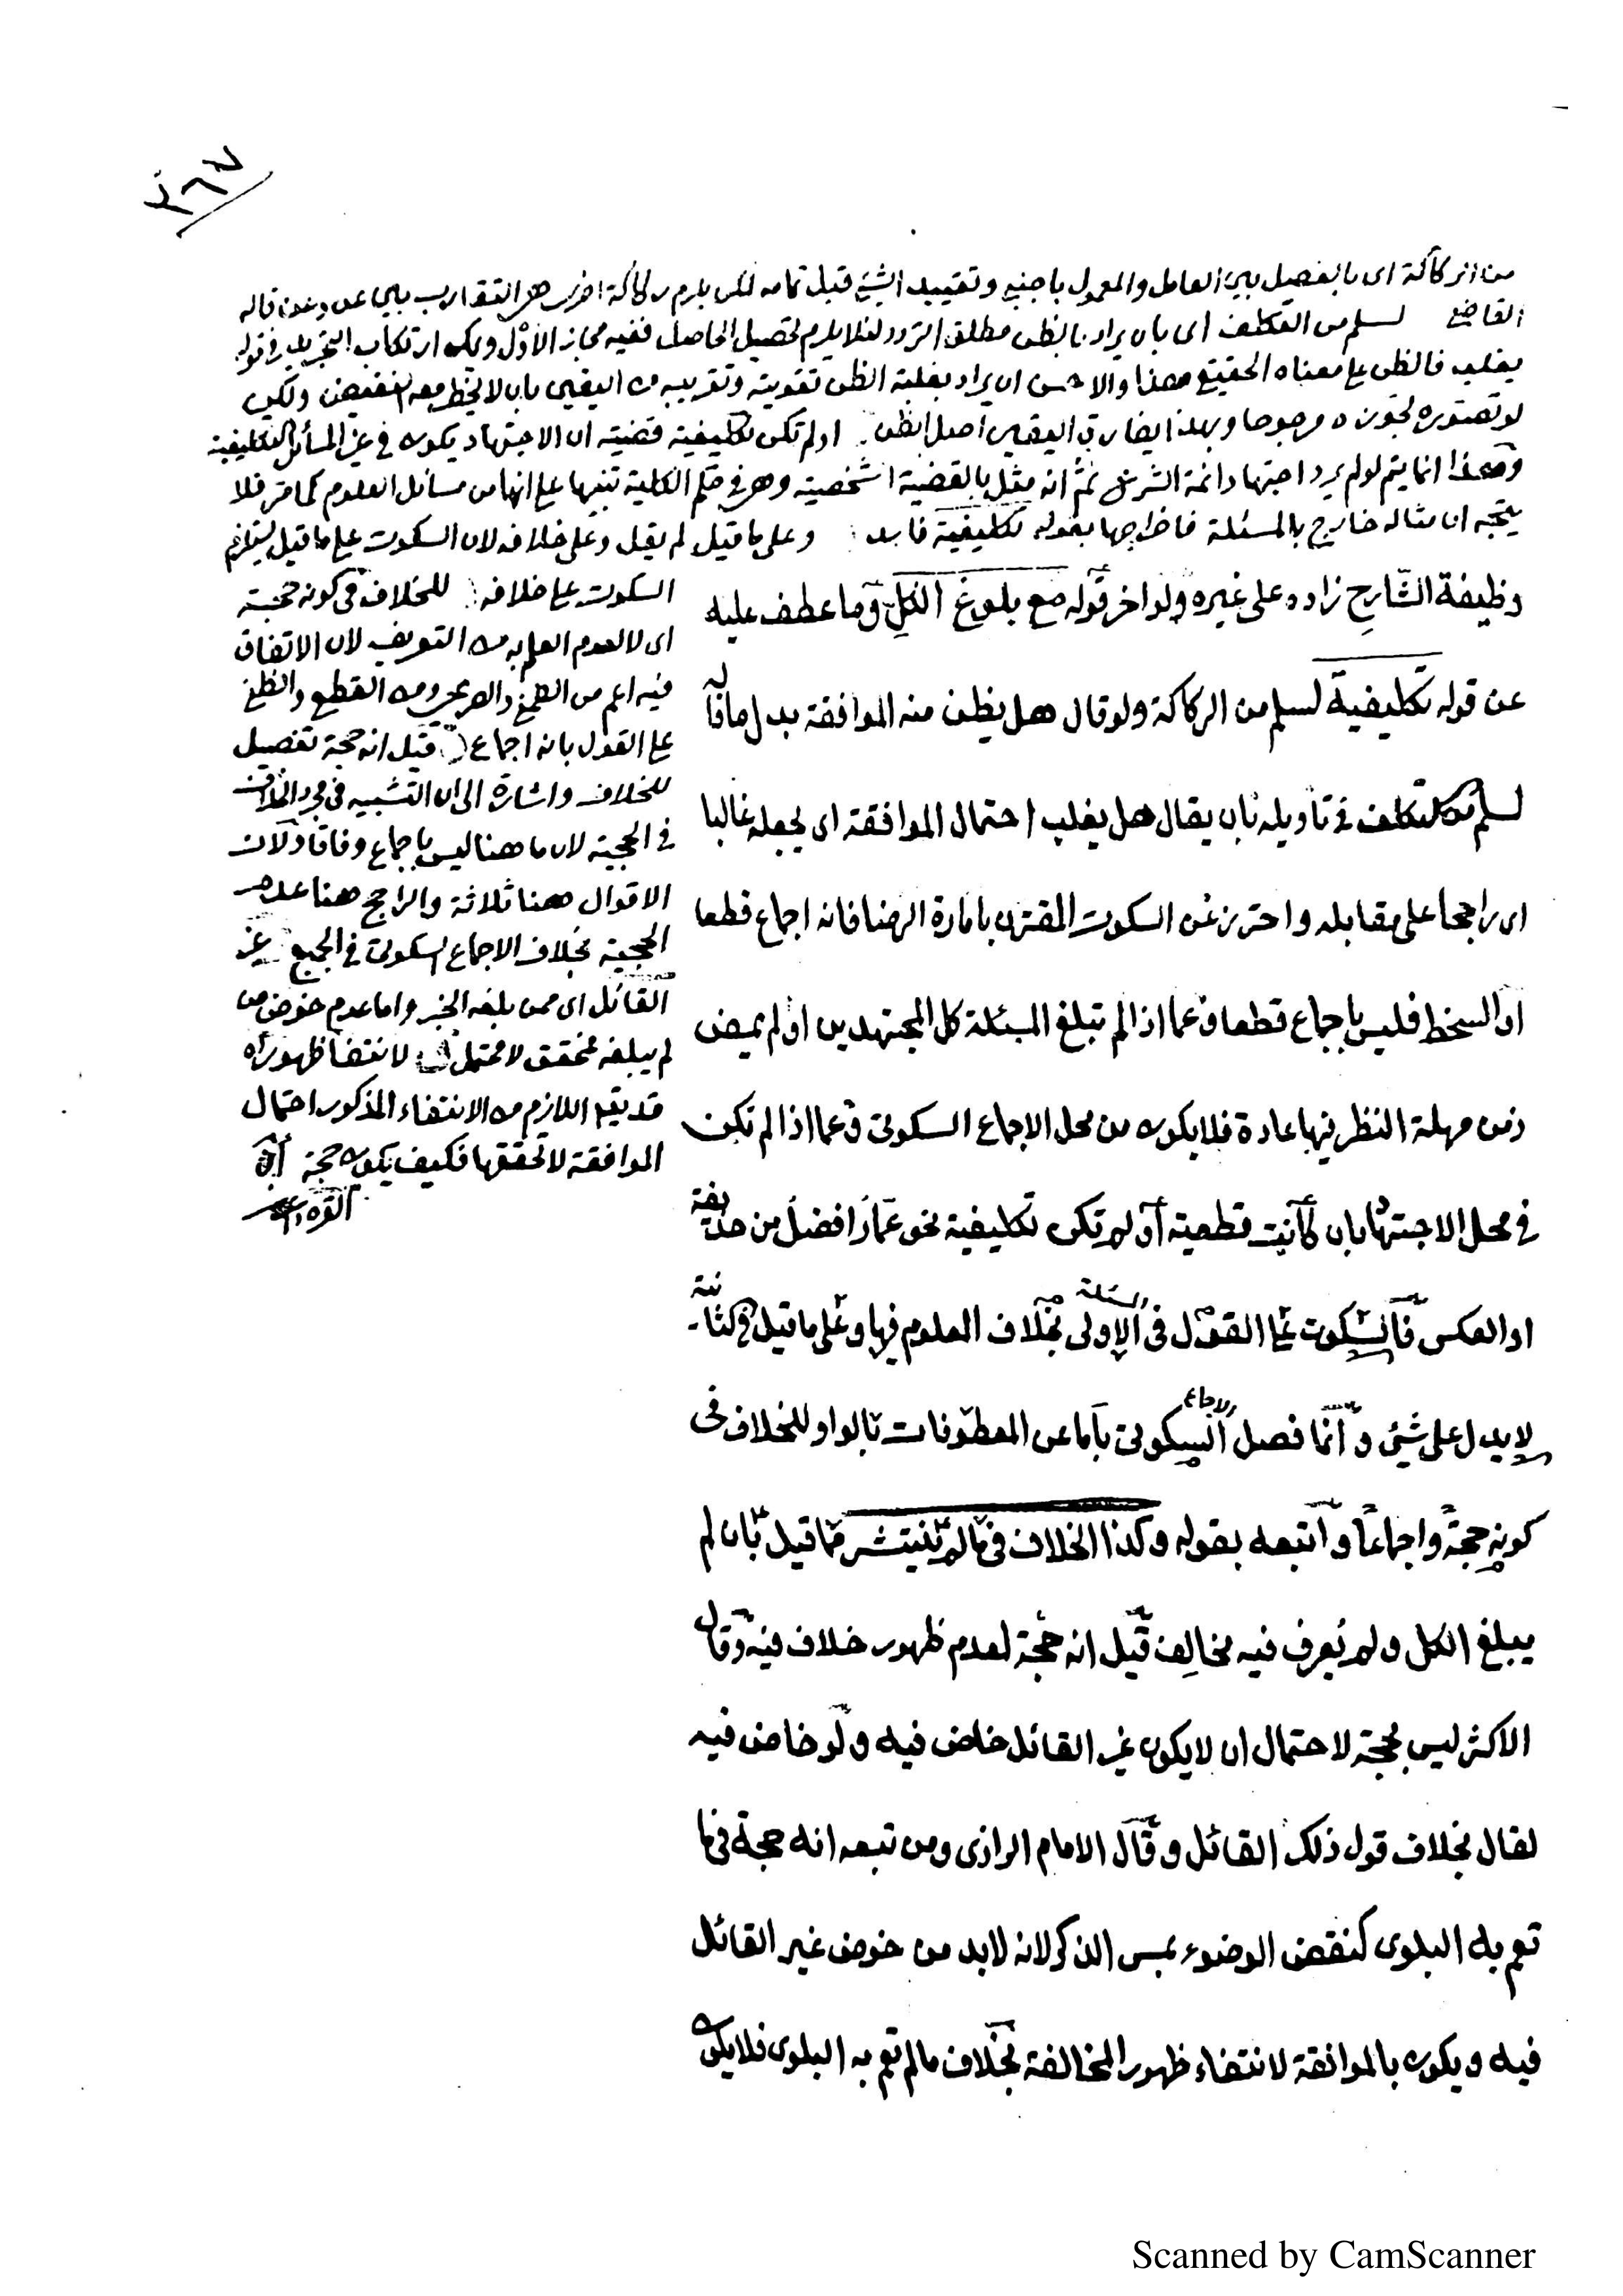 ٣٦٧
من الركاكة اى بالفصيل بين العامل والمعمول باجنبي وتقييد الشيئ قبل تمامه لكن يلزم ركاكة اخرى هى التقارب بين عن وعن قاله
القاضى لسلم من التكلف اى بان يراد بالظن مطلق التردد لئلا يلزم تحصيل الحاصل ففيه مجاز الأول ويمكن ارتكاب التجريد فى قوله
يغلب فالظن على معناه الحقيقى هذا والاحسن ان يراد بغلبة الظن تقويته وتقريبه من اليقين بان لا يخطر معه النقيض ولكن
لو تصوره لجوزه مرجوحا وبهذا يفارق اليقين اصل الظن او لم تكن تكليفية قضيته ان الاجتهاد يكون فى غير المسائل التكليفية
وهذا انما يتم لو لم يرد اجتهاد ائمة الشرع ثم انه مثل بالقضية الشخصية وهى فى حكم الكلية تنبيها على انها من مسائل العلوم كما مر فلا
يتجه ان مثاله خارج بالمسئلة فاخراجها بقوله تكليفية فاسد وعلى ما قيل لم يقل وعلى خلافه لان السكوت على ما قيل يستلزم
السكوت على خلافه للخلاف فى كونه حجية
اى لا لعدم العلم به من التعريف لان الاتفاق
فيه اعم من الظنى والصريح ومن القطعى والظنى
على القول بانه اجماع قيل انه حجة تفصيل
للخلاف واشارة الى ان التشبيه فى مجرد الخلاف
فى الحجية لان ما هنا ليس باجماع وفاقا ولان
الاقوال ههنا ثلاثة والراجح هنا عدم
الحجية بخلاف الاجماع السكوتى فى الجميع غير
القائل اى ممن بلغه الخبر واما عدم خوض من
لم يبلغه فمحقق لا محتمل لانتفاء ظهور اه
قد يقال اللازم من الانتفاء المذكور احتمال
الموافقة لا تحققها فكيف يكون حجة
وظيفة الشارح زاده على غيره ولو اخر قوله مع بلوغ الكل وما عطف عليه
عن قوله تكليفية لسلم من الركاكة ولو قال هل يظن منه الموافقة بدل ما قاله
لسلم من التكلف فى تأويله بان يقال هل يغلب احتمال الموافقة اى يجعله غالبا
اى راجحا على مقابله واحترز عن السكوت المقترن بامارة الرضا فانه اجماع قطعا
او السخط فليس باجماع قطعا وعما اذا لم تبلغ المسئلة كل المجتهدين او لم يمض
زمن مهلة النظر فيها عادة فلا يكون من محل الاجماع السكوتى وعما اذا لم تكن
فى محل الاجتهاد بان كانت قطعية او لم تكن تكليفية نحو عمار افضل من حذيفة
او العكس فالسكوت على القول فى المسئلة الاولى بخلاف المعلوم فيها وعلى ما قيل فى الثانية
لا يدل على شيئ وانما فصل الاجماع السكوتى باما عن المعطوفات بالواو للخلاف فى
كونه حجة واجماعا واتبعه بقوله وكذا الخلاف فيما لم ينتشر مما قيل بان لم
يبلغ الكل ولم يعرف فيه مخالف قيل انه حجة لعدم ظهور خلاف فيه وقال
الاكثر ليس بحجة لاحتمال ان لا يكون غير القائل خاض فيه ولو خاض فيه
لقال بخلاف قول ذلك القائل وقال الامام الرازى ومن تبعه انه حجة فيما
تعم به البلوى كنقض الوضوء بمس الذكر لانه لا بد من خوض غير القائل
فيه ويكون بالموافقة لانتفاء ظهور المخالفة بخلاف ما لم تعم به البلوى فلا يكون
Scanned by CamScanner